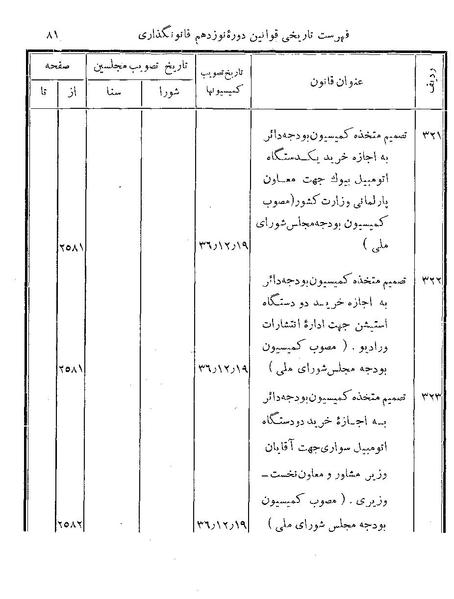 فهرست تاریخی قوانین دورهٔ نوزدهم قانونگذاری ۸۱
ردیف
عنوان قانون
تاریخ تصویب کمیسیونها
تاریخ تصویب مجلسین
شورا سنا
صفحه
از تا
۳۲۱ تصمیم متخذه کمیسیون بودجه دائر
به اجازه خرید یکدستگاه
اتومبیل بیوک جهت معاون
پارلمانی وزارت کشور(مصوب
کمیسیون بودجه مجلس شورای
ملی ) ۳۶٫۱۲٫۱۹ ۲۵۸۱
۳۲۲ تصمیم متخذه کمیسیون بودجه دائر
به اجازه خرید دو دستگاه
استیشن جهت ادارهٔ انتشارات
ورادیو . ( مصوب کمیسیون
بودجه مجلس شورای ملی ) ۳۶٫۱۲٫۱۹ ۲۵۸۱
۳۲۳ تصمیم متخذه کمیسیون بودجه دائر
به اجازهٔ خرید دودستگاه
اتومبیل سواری جهت آقایان
وزیر مشاور و معاون نخست-
وزیری . ( مصوب کمیسیون
بودجه مجلس شورای ملی ) ۳۶٫۱۲٫۱۹ ۲۵۸۲